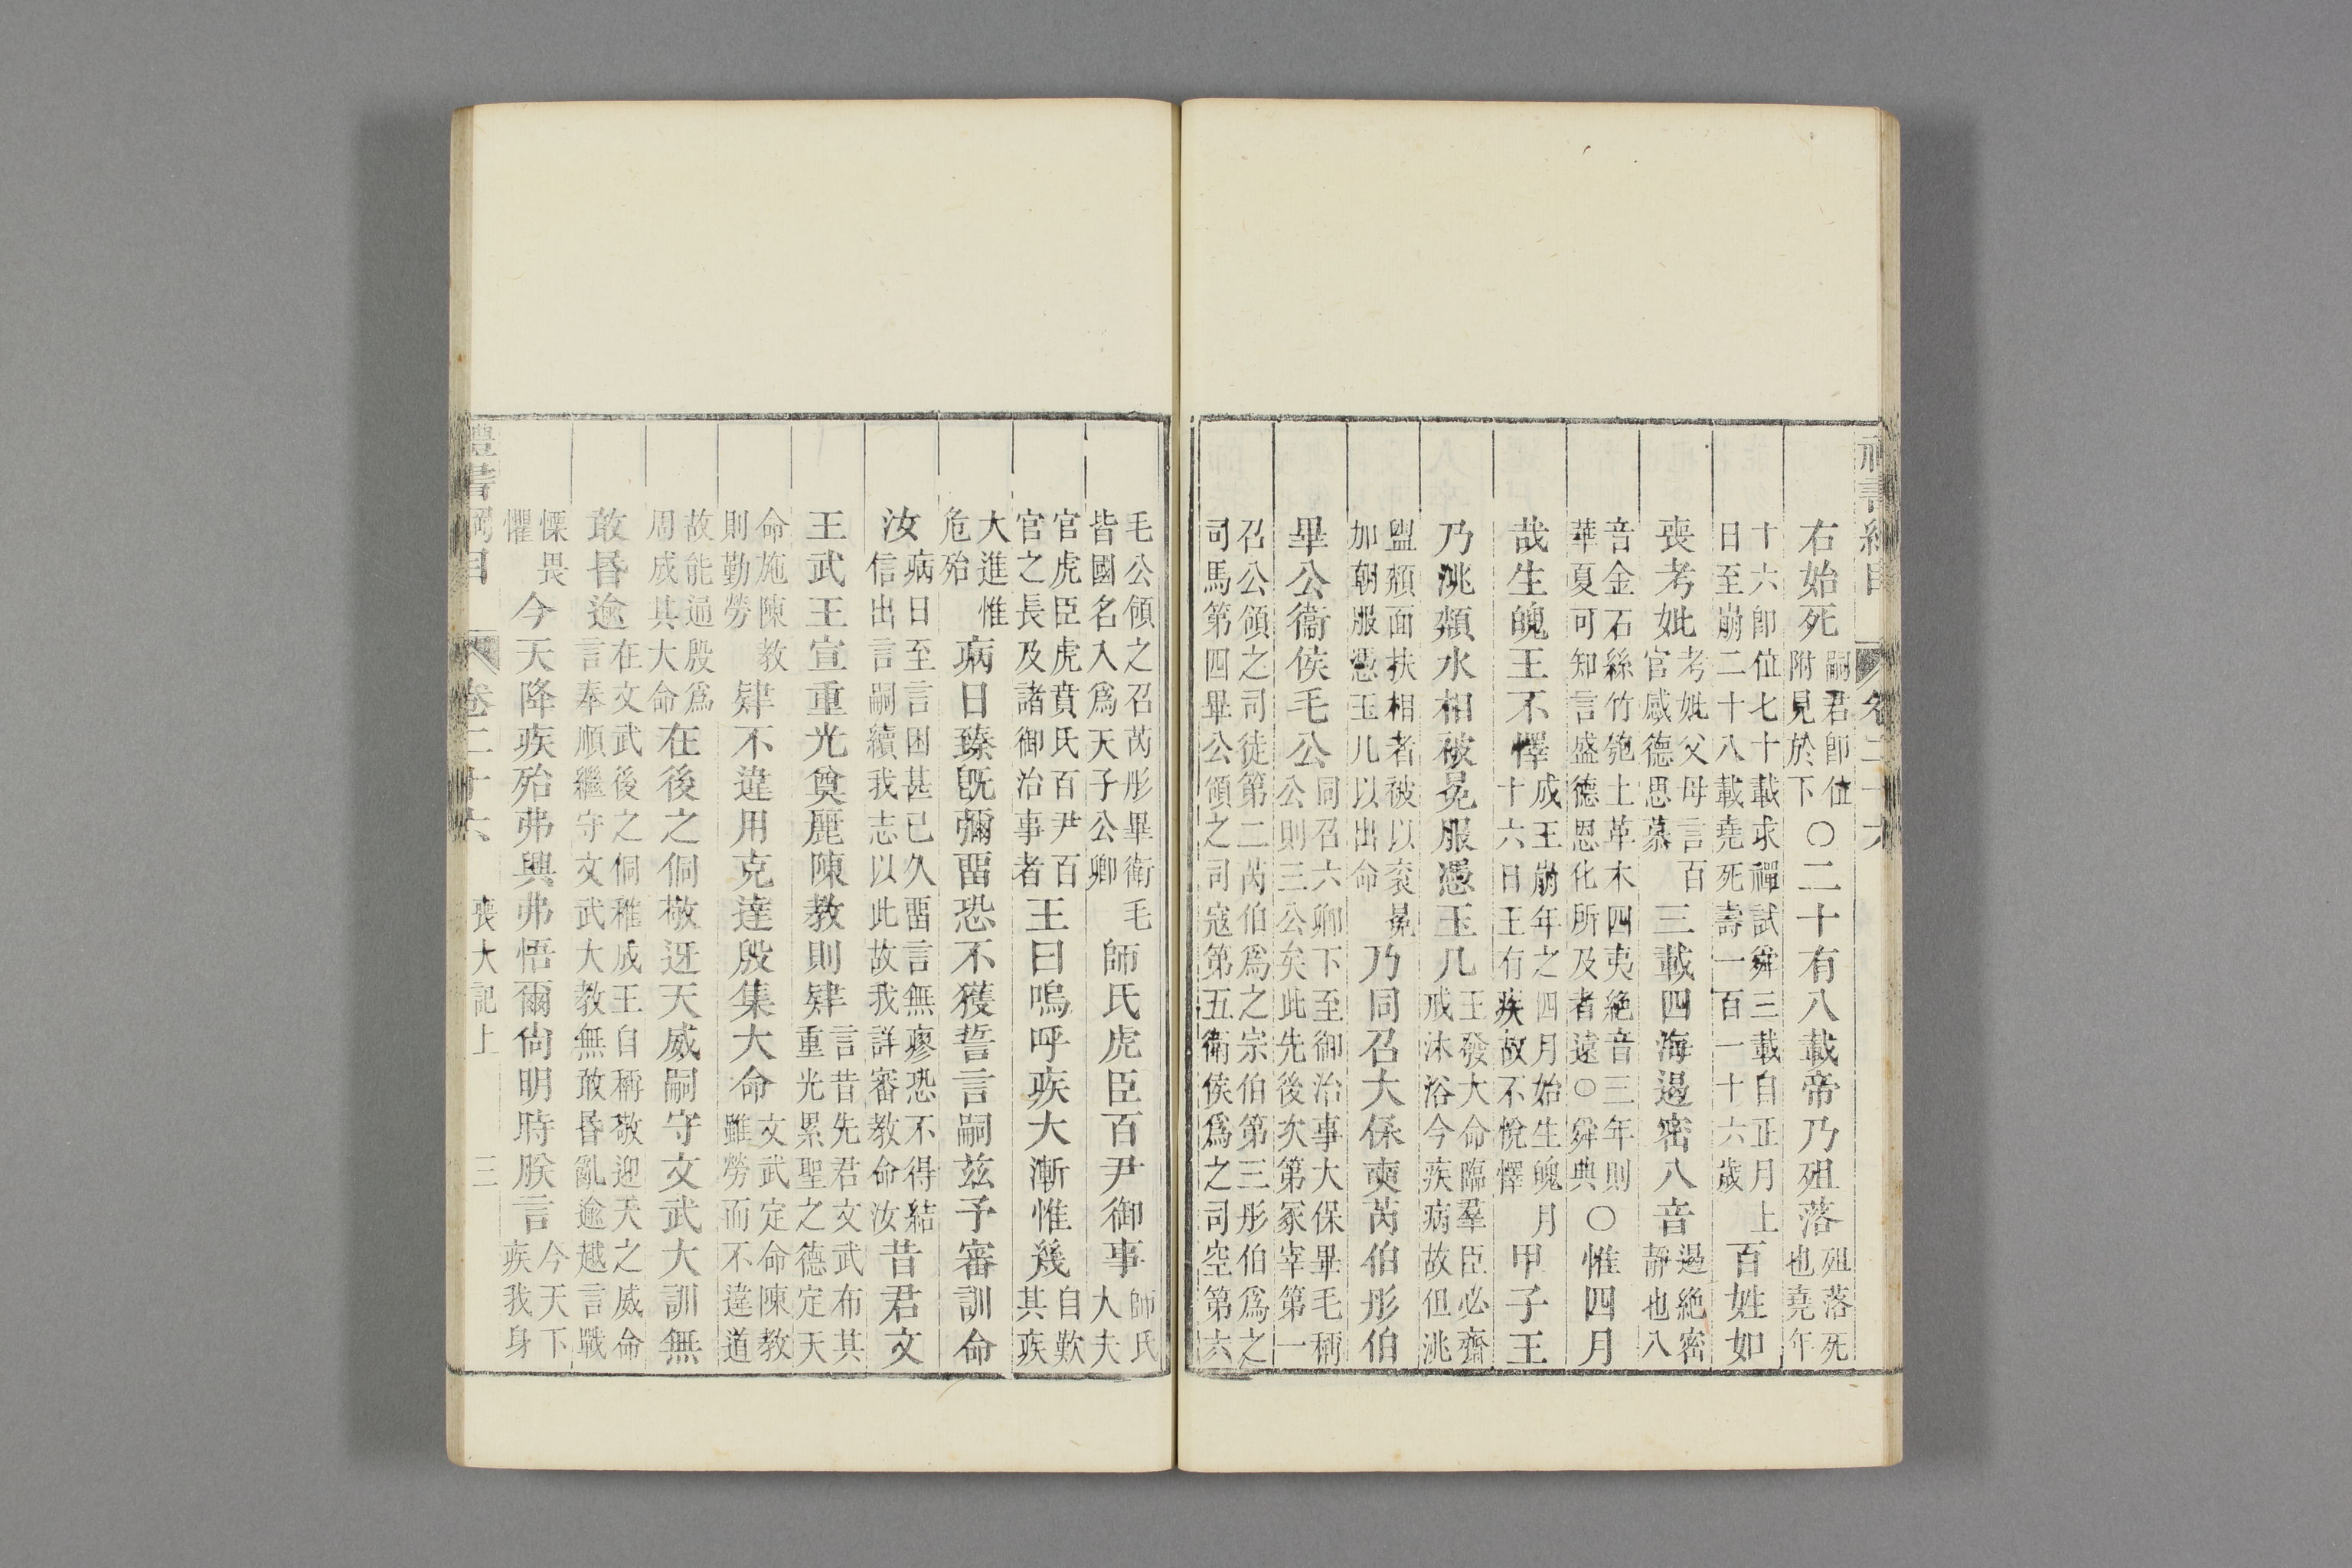 禮書綱目 卷二十六
右始死嗣君卽位附見於下〇二十有八載帝乃殂落殂落死也堯年
十六卽位七十載求禪試舜三載自正月上日至崩二十八載堯死壽一百一十六歲百姓如
喪考妣考妣父母言百官感德思慕三載四海遏密八音遏絶密靜也八
音金石絲竹匏土革木四夷絶音三年則華夏可知言盛德恩化所及者遠〇舜典〇惟四月
哉生魄王不懌成王崩年之四月始生魄月十六日王有疾故不悅懌甲子王
乃洮頮水相被冕服憑玉几王發大命臨羣臣必齋戒沐浴今疾病故但洮
盥頮面扶相者被以衮冕加朝服憑玉几以出命乃同召大保奭芮伯彤伯
畢公衞侯毛公同召六卿下至御治事大保畢毛稱公則三公矣此先後次第冢宰第一
召公領之司徒第二芮伯爲之宗伯第三彤伯爲之司馬第四畢公領之司寇第五衛侯爲之司空第六
毛公領之召芮彤畢衛毛皆國名入爲天子公卿師氏虎臣百尹御事師氏大夫
官虎臣虎賁氏百尹百官之長及諸御治事者王曰嗚呼疾大漸惟幾自歎其疾
大進惟危殆病日臻旣彌畱恐不獲誓言嗣茲予審訓命
汝病日至言困甚已久畱言無瘳恐不得結信出言嗣續我志以此故我詳審教命汝昔君文
王武王宣重光奠麗陳教則肄言昔先君文武布其重光累聖之德定天
命施陳教則勤勞肄不違用克達殷集大命文武定命陳教雖勞而不違道
故能通殷爲周成其大命在後之侗敬迓天威嗣守文武大訓無
敢昬逾在文武後之侗稚成王自稱敬迎天之威命言奉順繼守文武大教無敢昬亂逾越言戰
慄畏懼今天降疾殆弗興弗悟爾尙明時朕言今天下疾我身
禮書綱目 卷二十六 喪大記上 三